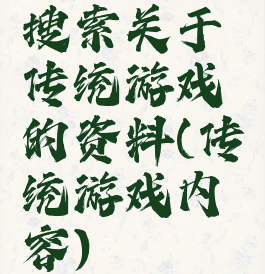 搜索关于
传统游戏
的资料(传
统游戏内
容)